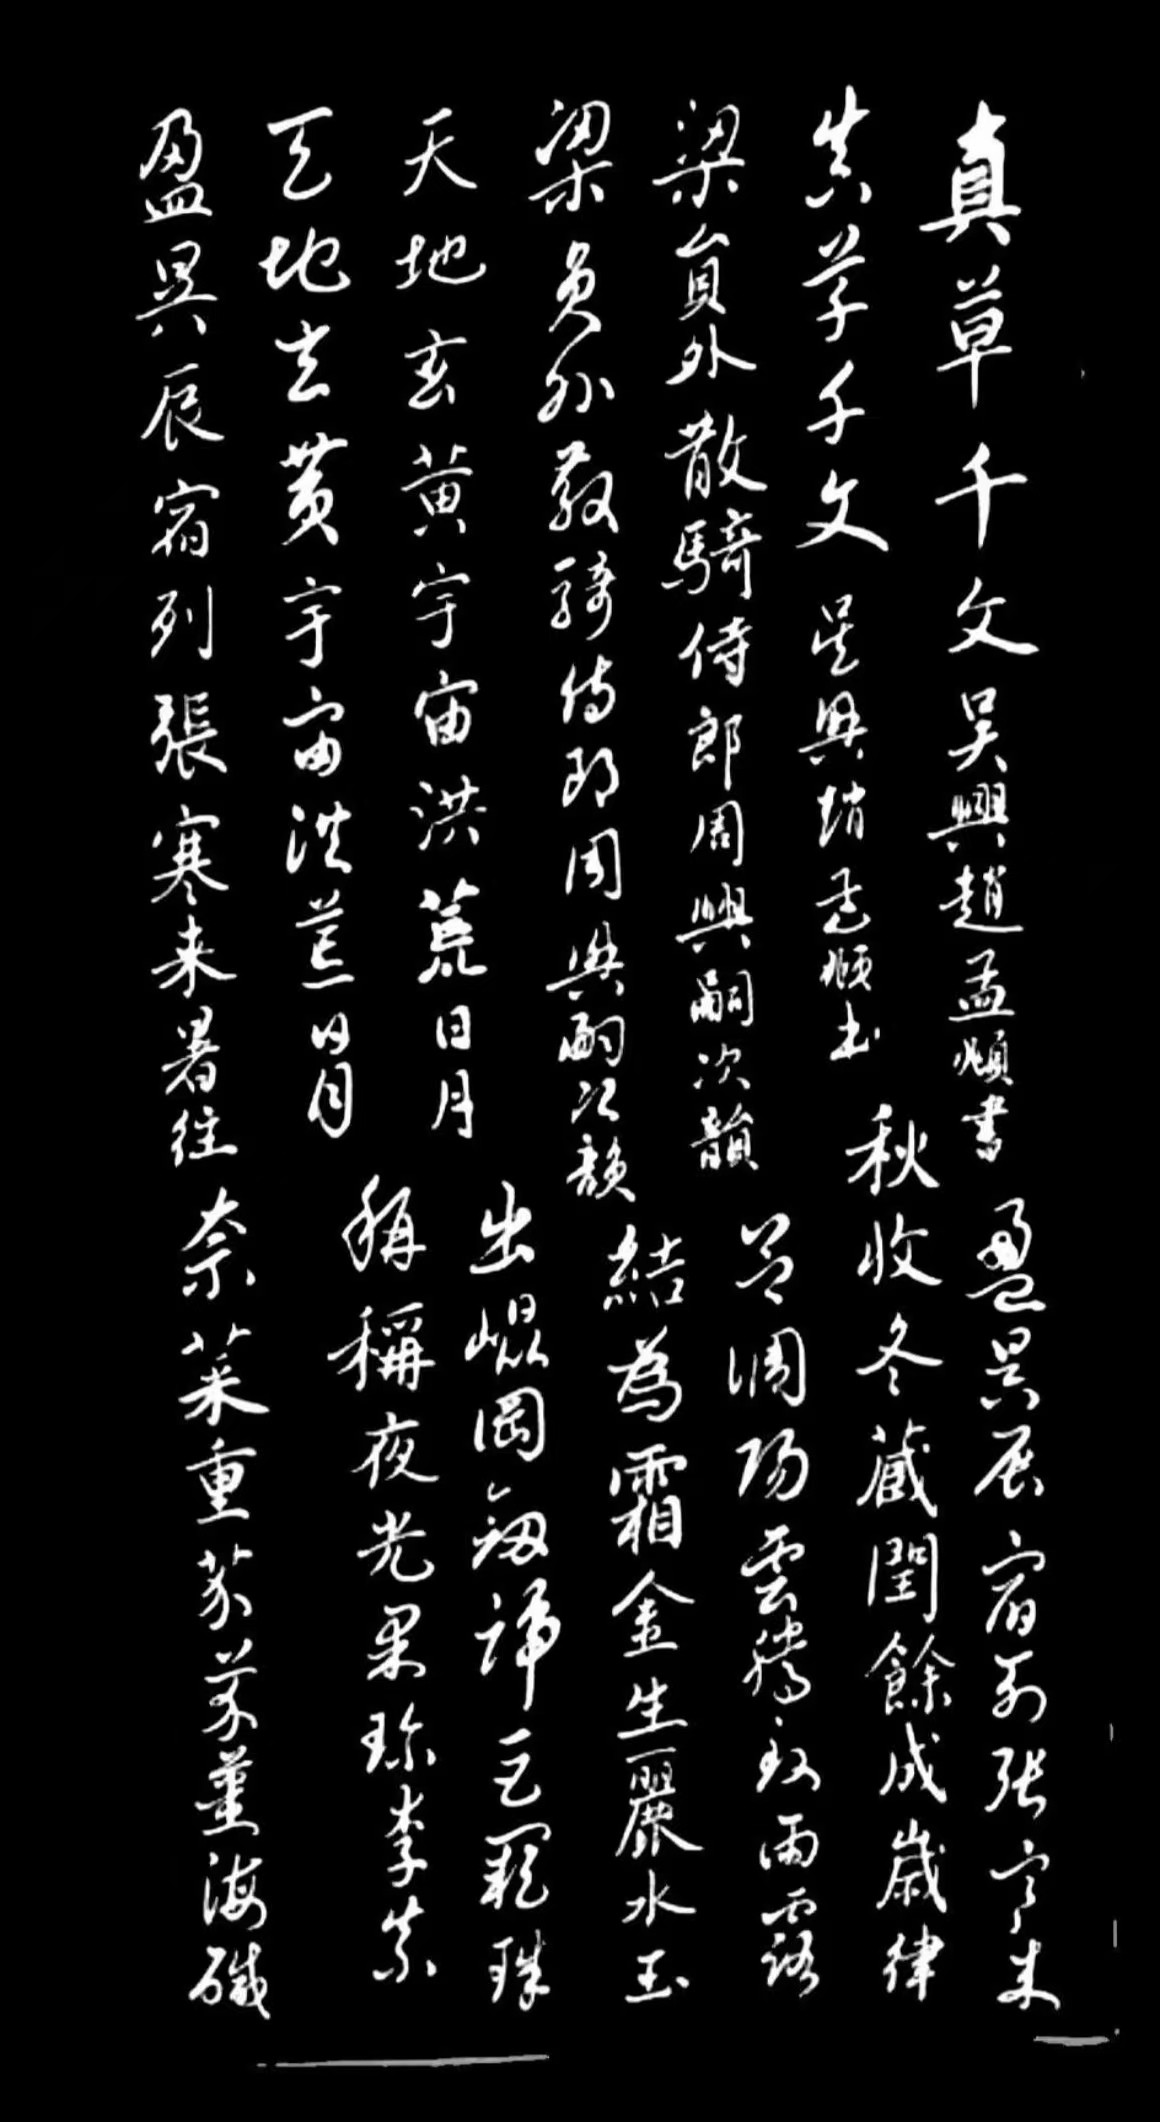 真草千文吴興趙孟頫書
真草千文吴興趙孟頫書
梁員外散騎侍郎周興嗣次韻
梁員外散騎侍郎周興嗣次韻
天地玄黄宇宙洪荒日月
天地玄黄宇宙洪荒日月
盈昃辰宿列張寒来暑往
盈昃辰宿列張寒来
秋收冬藏閏餘成歲律
吕調陽雲騰致雨露
結為霜金生麗水玉
出崐岡劒號巨闕珠
稱稱夜光果珍李柰
柰菜重芥芥薑海鹹